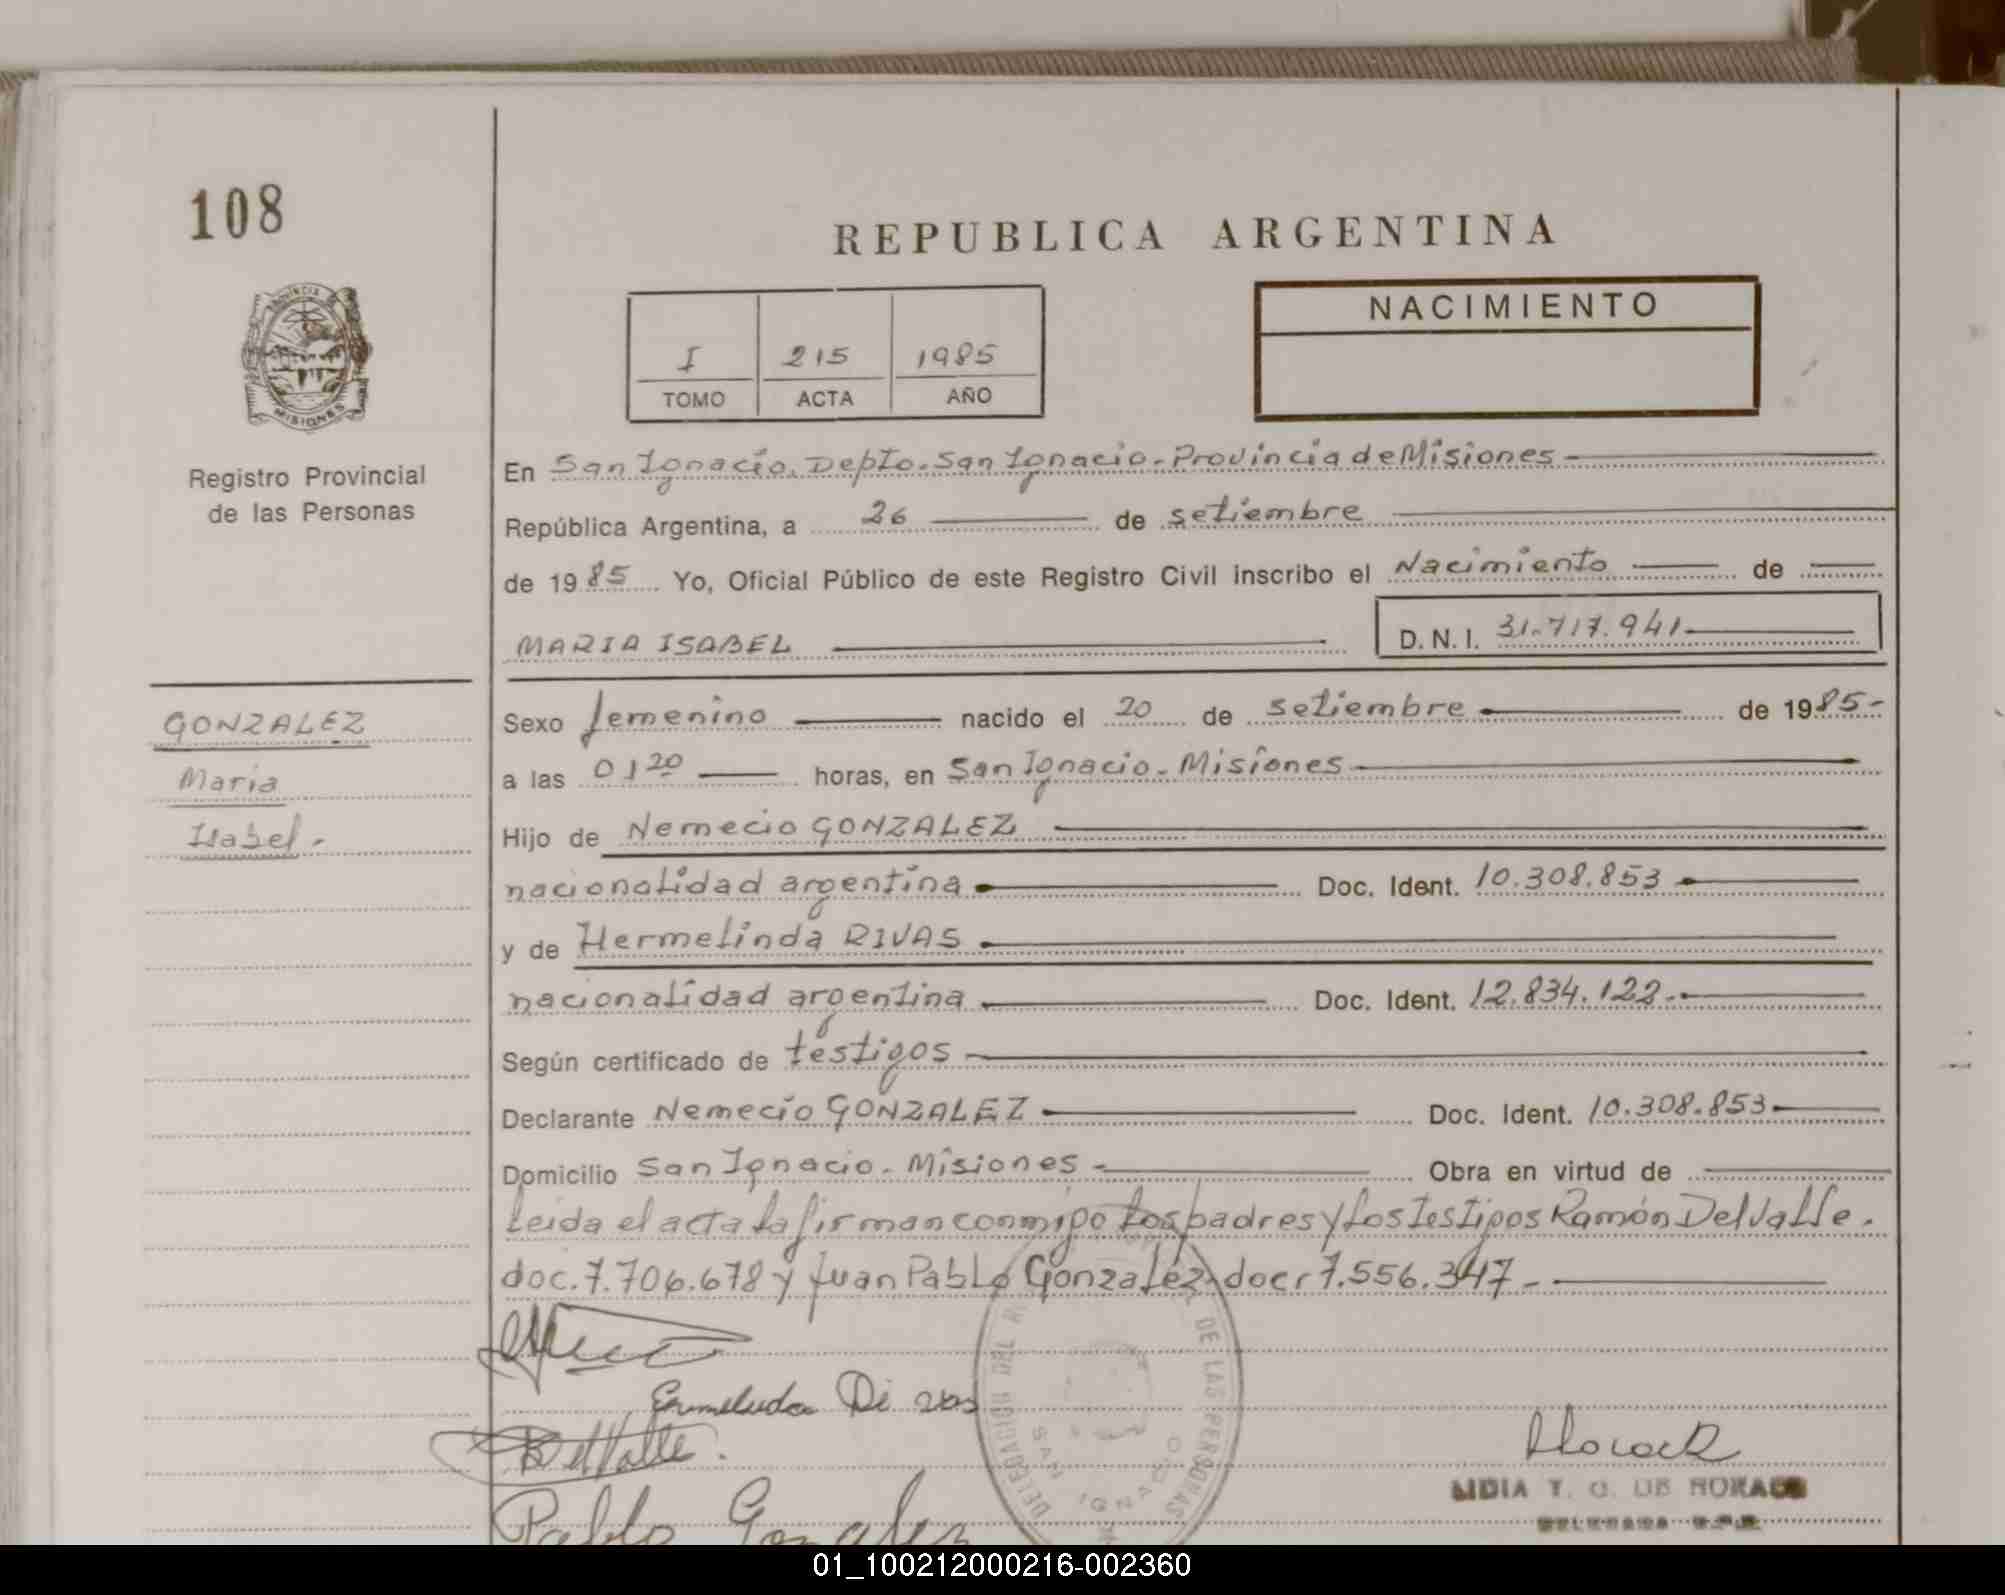 108
REPUBLICA ARGENTINA
PROVINCIA
MISIONES
Registro Provincial
de las Personas
I 215 1985
TOMO ACTA AÑO
NACIMIENTO
En San Ignacio. Depto. San Ignacio - Provincia de Misiones
República Argentina, a 26 de setiembre
de 1985 Yo, Oficial Público de este Registro Civil inscribo el Nacimiento de
MARIA ISABEL D.N.I. 31.717.941
GONZALEZ
Maria
Isabel.
Sexo femenino nacido el 20 de setiembre de 1985-
a las 01 20 horas, en San Ignacio - Misiones
Hijo de Nemecio GONZALEZ
nacionalidad argentina Doc. Ident. 10.308.853
y de Hermelinda RIVAS
nacionalidad argentina Doc. Ident. 12.834.122.-
Según certificado de testigos
Declarante Nemecio GONZALEZ Doc. Ident. 10.308.853
Domicilio San Ignacio - Misiones - Obra en virtud de
Leida el acta la firman conmigo los padres y los testigos Ramón Del Valle.
doc. 7.706.678 y Juan Pablo Gonzalez doc 7.556.347-
DelValle.
Pablo Gonzalez
DELEGACION DEL DE LAS PERSONAS
SAN IGNACIO
LIDIA T. G. DE HORACK
DELEGADA R.P.P.
01_100212000216-002360